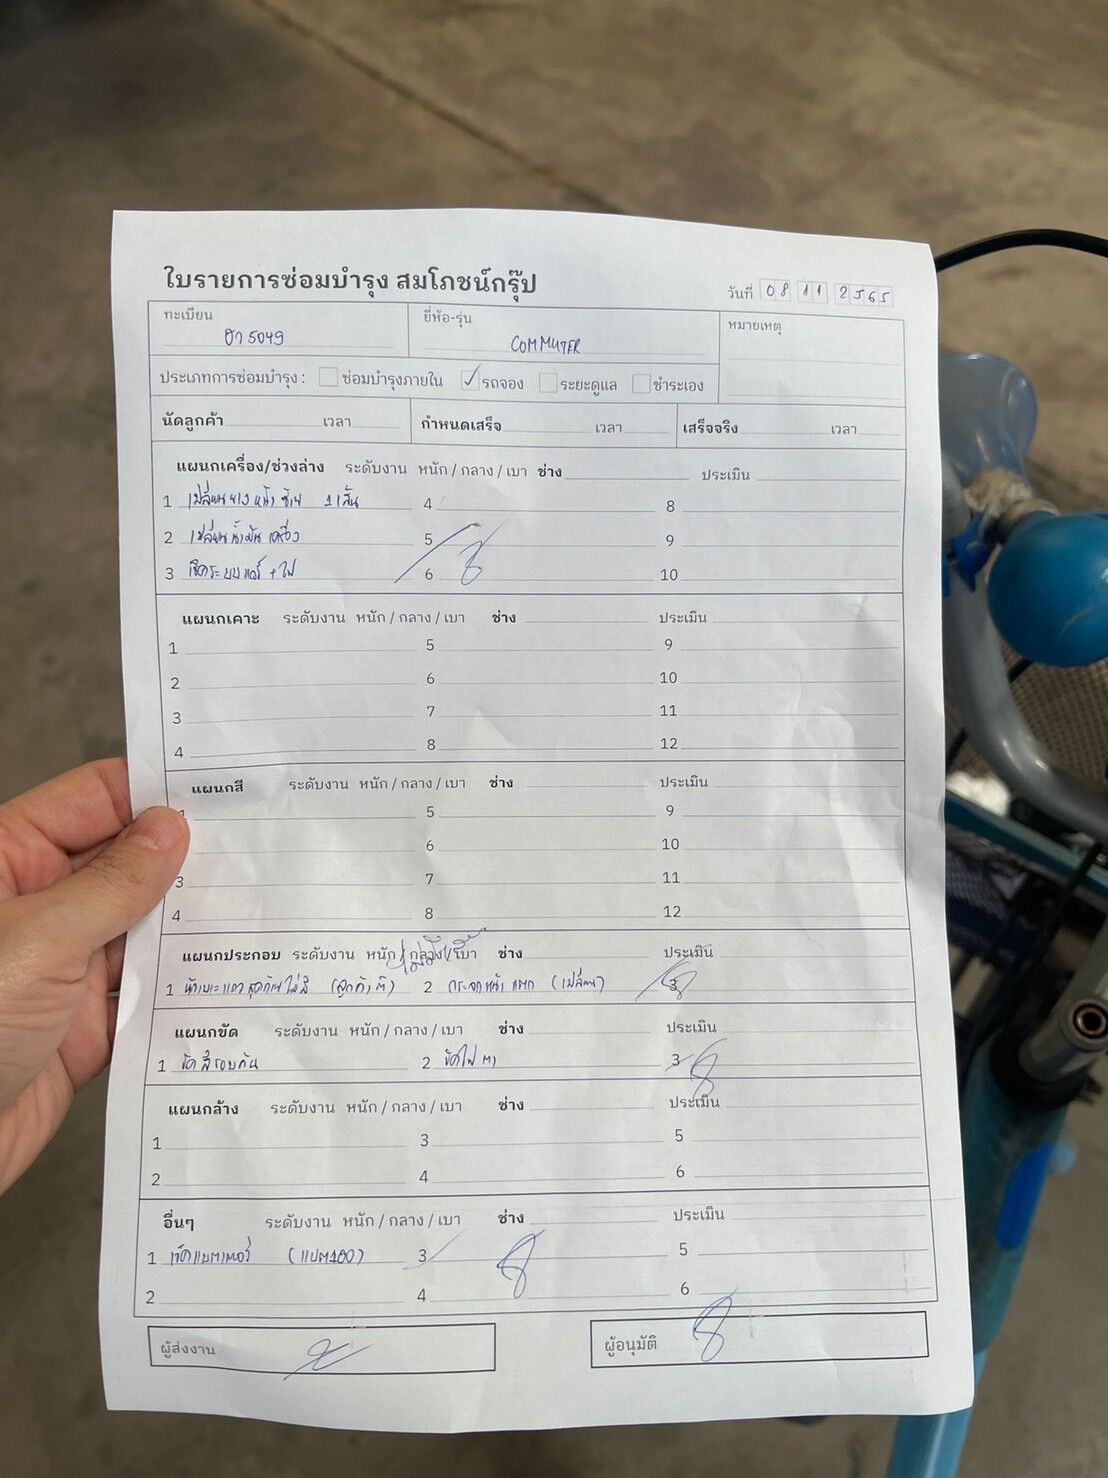 ใบรายการซ่อมบำรุง สมโภชน์กรุ๊ป
วันที่ 08 11 2565
ทะเบียน ฮา 5049 ยี่ห้อ-รุ่น COMMUTER หมายเหตุ
ประเภทการซ่อมบำรุง : ซ่อมบำรุงภายใน ✓ รถจอง ระยะดูแล ชำระเอง
นัดลูกค้า เวลา กำหนดเสร็จ เวลา เสร็จจริง เวลา
แผนกเครื่อง/ช่วงล่าง ระดับงาน หนัก / กลาง / เบา ช่าง ประเมิน
1 เปลี่ยนยางหน้าซ้าย 1 เส้น 4 8
2 เปลี่ยนน้ำมันเครื่อง 5 9
3 เช็คระบบแอร์ + ไฟ 6 10
แผนกเคาะ ระดับงาน หนัก / กลาง / เบา ช่าง ประเมิน
1 5 9
2 6 10
3 7 11
4 8 12
แผนกสี ระดับงาน หนัก / กลาง / เบา ช่าง ประเมิน
1 5 9
6 10
3 7 11
4 8 12
แผนกประกอบ ระดับงาน หนัก / กลาง / เบา ช่าง ประเมิน
1 2 กระจกหน้าแตก (เปลี่ยน) 3
แผนกขัด ระดับงาน หนัก / กลาง / เบา ช่าง ประเมิน
1 ขัดสีรอบคัน 2 ขัดไฟตา 3
แผนกล้าง ระดับงาน หนัก / กลาง / เบา ช่าง ประเมิน
1 3 5
2 4 6
อื่นๆ ระดับงาน หนัก / กลาง / เบา ช่าง ประเมิน
1 เช็คแบตเตอรี่ 3 5
2 4 6
ผู้ส่งงาน ผู้อนุมัติ